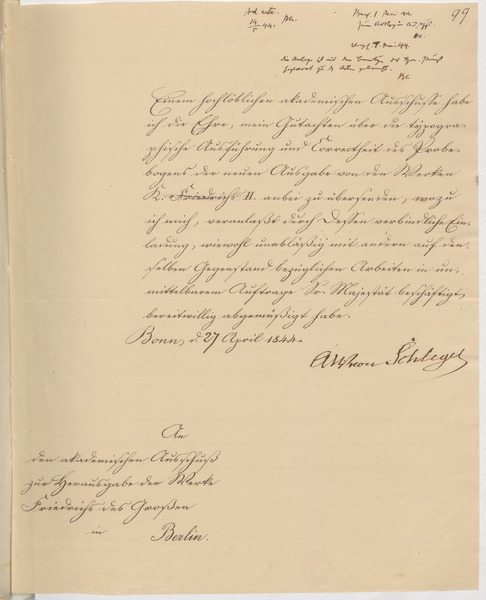 Ad acta. 99
Einem hochlöblichen akademischen Ausschusse habe
ich die Ehre, mein Gutachten über die typogra-
phische Ausführung und Correctheit des Probe-
bogens der neuen Ausgabe von den Werken
K. Friedrichs II. anbei zu übersenden, wozu
ich mich, veranlaßt durch Dessen verbindliche Ein-
ladung, wiewohl unabläßig mit andern auf den-
selben Gegenstand bezüglichen Arbeiten in un-
mittelbarem Auftrage Sr. Majestät beschäftigt,
bereitwillig abgemüßigt habe.
Bonn, d. 27 April 1844.
AW von Schlegel
An
den akademischen Ausschuß
zur Herausgabe der Werke
Friedrichs des Großen
in Berlin.